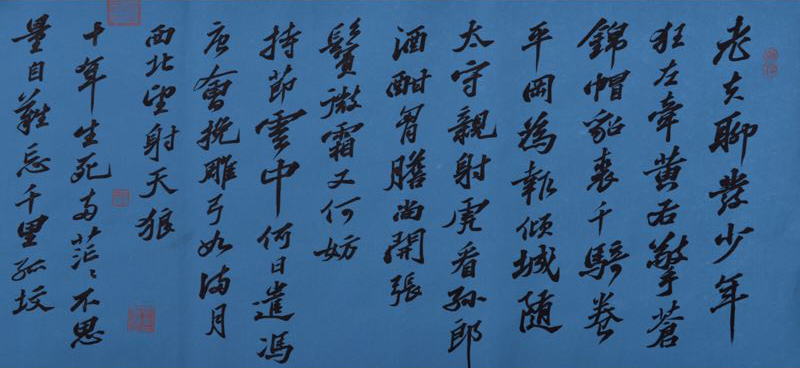 老夫聊發少年
狂左牽黃右擎蒼
錦帽貂裘千騎卷
平岡為報傾城隨
太守親射虎看孫郎
酒酣胷膽尚開張
鬢微霜又何妨
持節雲中何日遣馮
唐會挽雕弓如滿月
西北望射天狼
十年生死兩茫々不思
量自難忘千里孤墳